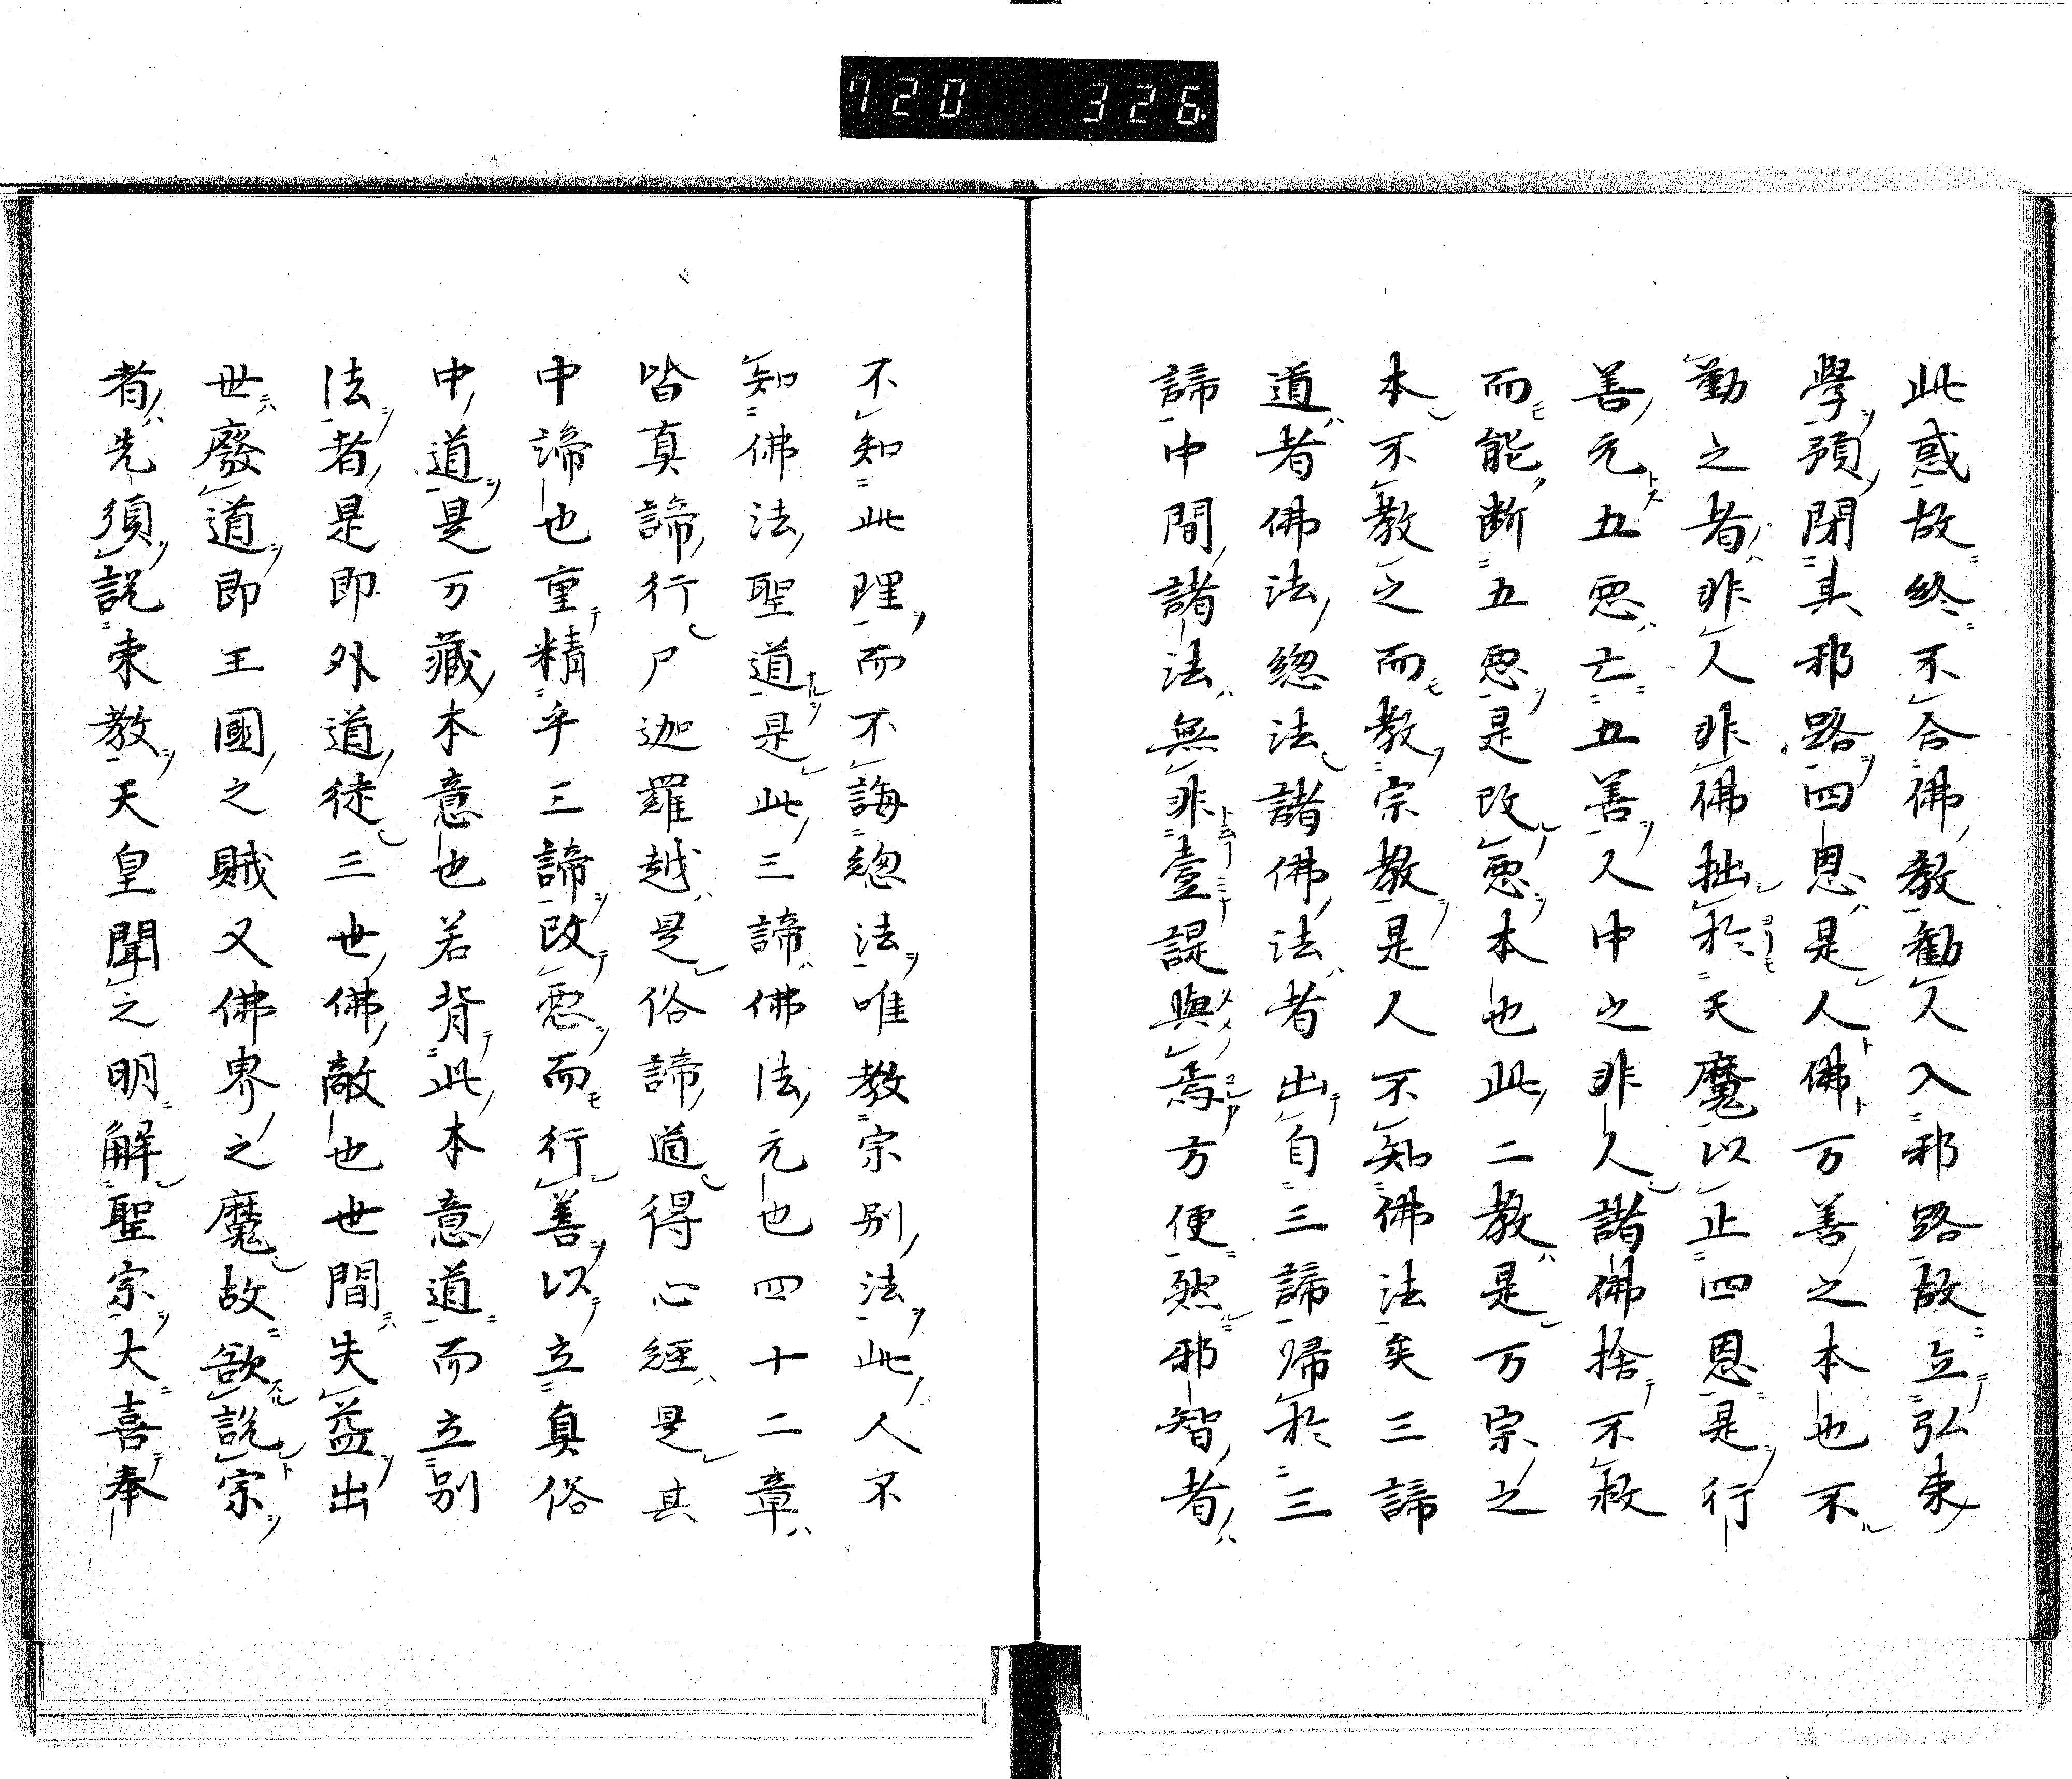 720 326.
此惑故終不合佛教勧人入邪路故立弘束
學預閉其邪路四恩是人佛万善之本也不
勤之者非人非佛拙於天魔以止四恩是行
善元五悪亡五善人中之非人諸佛捨不救
而能断五悪是改悪本也此二教是万宗之
本不教之而教宗教是人不知佛法矣三諦
道者佛法總法諸佛法者出自三諦帰於三
諦中間諸法無非壹諟與焉方便然邪智者
不知此理而不誨總法唯教宗別法此人不
知佛法聖道是此三諦佛法元也四十二章
皆真諦行尸迦羅越是俗諦道得心經是其
中諦也重精乎三諦改悪而行善以立真俗
中道是万蔵本意也若背此本意道而立別
法者是即外道徒三世佛敵也世間失益出
世廢道即王國之賊又佛界之魔故欲説宗
者先須説束教天皇聞之明解聖宗大喜奉